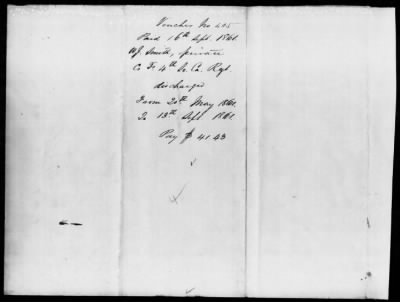 Voucher No 405
Paid 16th Sept 1861
W.J. Smith, private
Co F, 4th So. Ca. Regt.
discharged
From 20th May 1861.
To 13th Sept 1861.
Pay $ 41.43